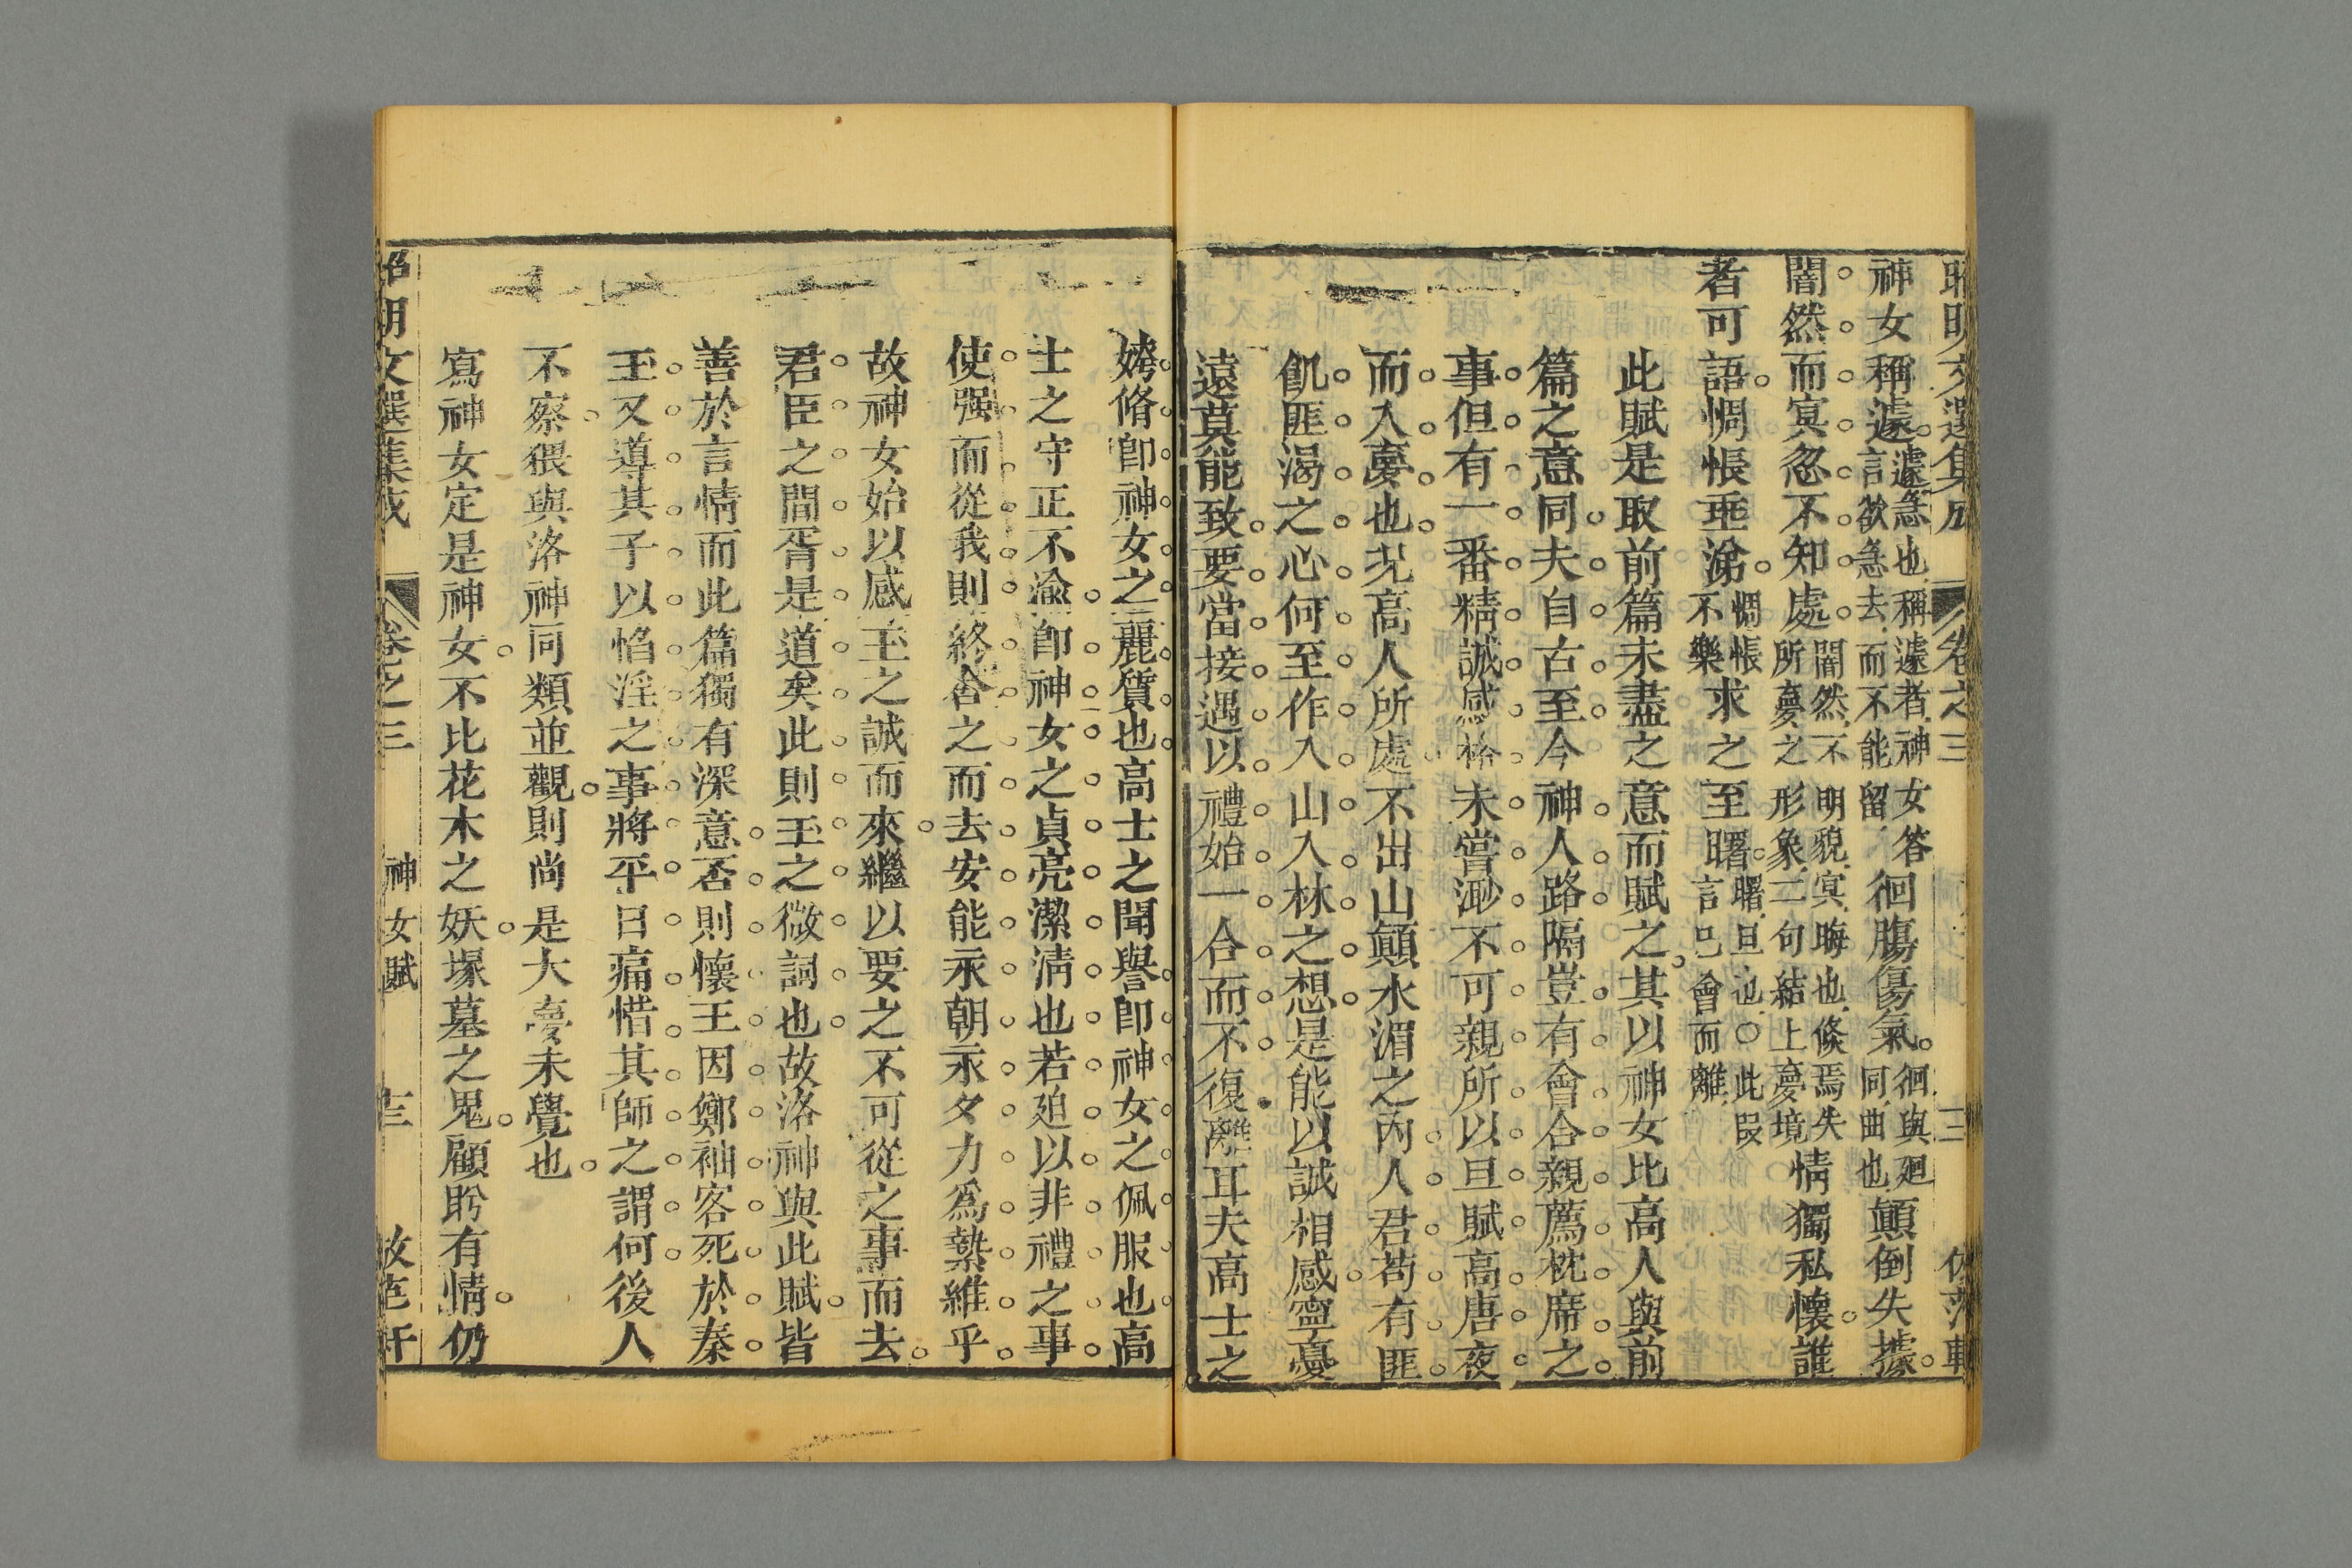 神女稱遽。遽急也,稱遽者,神女答言欲急去,而不能留 徊腸傷氣。徊與廻同,曲也 顛倒失據。
闇然而冥忽不知處。闇然,不明貌,冥,晦也,倏焉失所夢之形象,二句結上夢境 情獨私懷。誰
者可語。惆悵垂涕。惆悵不樂 求之至曙。曙,旦也○此叚言巳會而離
此賦是取前篇未盡之意而賦之。其以神女比高人與前
篇之意同。夫自古至今神人路隔豈有會合親薦枕席之
事但有一番精誠感格未嘗渺不可親所以旦賦高唐夜
而入夢也。况高人所處不出山顛水湄之內人君苟有匪
飢匪渴之心何至作入山入林之想是能以誠相感寧憂
遠莫能致。要當接遇以禮始一合而不復離耳夫高士之
姱脩卽神女之麗質也高士之聞譽卽神女之佩服也高
士之守正不渝卽神女之貞亮潔淸也若廹以非禮之事
使强而從我則終舍之而去安能永朝永夕力爲縶維乎。
故神女始以感王之誠而來。繼以要之不可從之事而去。
君臣之間胥是道矣此則玉之微詞也故洛神與此賦。皆
善於言情而此篇獨有深意。否則懷王因鄭袖客死於秦。
玉又導其子以怊淫之事將平日痛惜其師之謂何後人
不察。猥與洛神同類並觀。則尚是大夢未覺也。
寫神女定是神女。不比花木之妖。塚墓之鬼。顧盻有情。仍
昭明文選集成 卷之三 神女賦